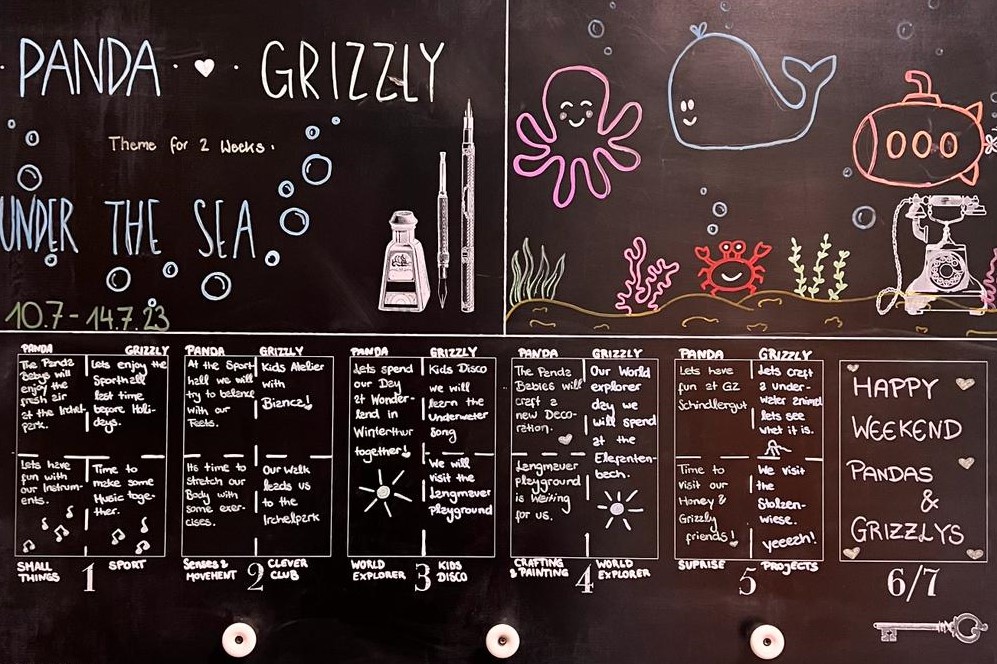 PANDA · GRIZZLY
Theme for 2 Weeks:
UNDER THE SEA
10.7 - 14.7.23
PANDA
The Panda
Babys will
enjoy the
fresh air
at the Irchel-
park.
Lets have
fun with
our Instrum-
ents.
SMALL
THINGS
GRIZZLY
Lets enjoy the
Sporthall
last time
before Holi-
days.
Time to
make some
Music toge-
ther.
SPORT
1
PANDA
At the Sport
hall we will
try to balance
with our
Feets.
Its time to
stretch our
Body with
some exer-
cises.
Senses &
MOVEMENT
GRIZZLY
Kids Atelier
with
Bianca!
Our Walk
leads us
to the
Irchelpark
CLEVER
CLUB
2
PANDA
Lets spend
our Day
at Wonder-
lend in
Winterthur
together!
WORLD
EXPLORER
GRIZZLY
Kids Disco
we will
learn the
Underwater
Song
We will
visit the
Langmauer
playground
KIDS
DISCO
3
PANDA
The Panda
Babies will
craft a
new Deco-
ration.
Langmauer
playground
is waiting
for us.
CRAFTING
& PAINTING
GRIZZLY
Our World
explorer
day we
will spend
at the
Elefanten-
bach.
WORLD
EXPLORER
4
PANDA
Lets have
fun at GZ
Schindlergut
Time to
visit our
Honey &
Grizzly
friends!
SUPRISE
GRIZZLY
Lets craft
a under-
water animal
lets see
what it is.
We visit
the
Stolzen-
wiese.
yeeezh!
PROJECTS
5
HAPPY
WEEKEND
PANDAS
&
GRIZZLYS
6/7